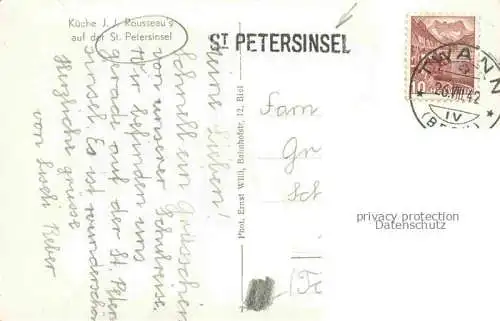 Küche J. J. Rousseau's
auf der St. Petersinsel
ST PETERSINSEL
TWANN
26.VIII.42
IV
10
Meine Lieben!
Schnell ein Grüsschen
von unserer Schulreise.
Wir befinden uns
gerade auf der St. Peters
insel. Es ist wunderschön
Herzliche grüsse
von
Reber
Phot. Ernst Willi, Bahnhofstr. 12, Biel
Fam
Gr
Sch
privacy protection
Datenschutz